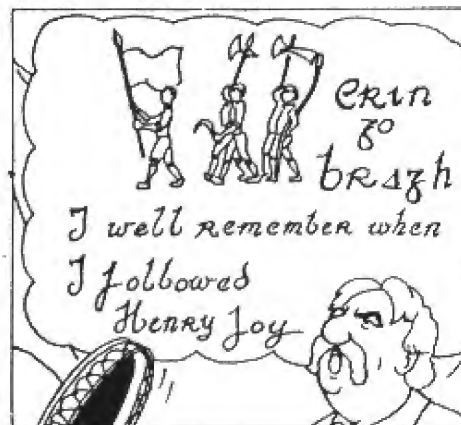 erin
go
bragh
I well remember when
I followed
Henry Joy